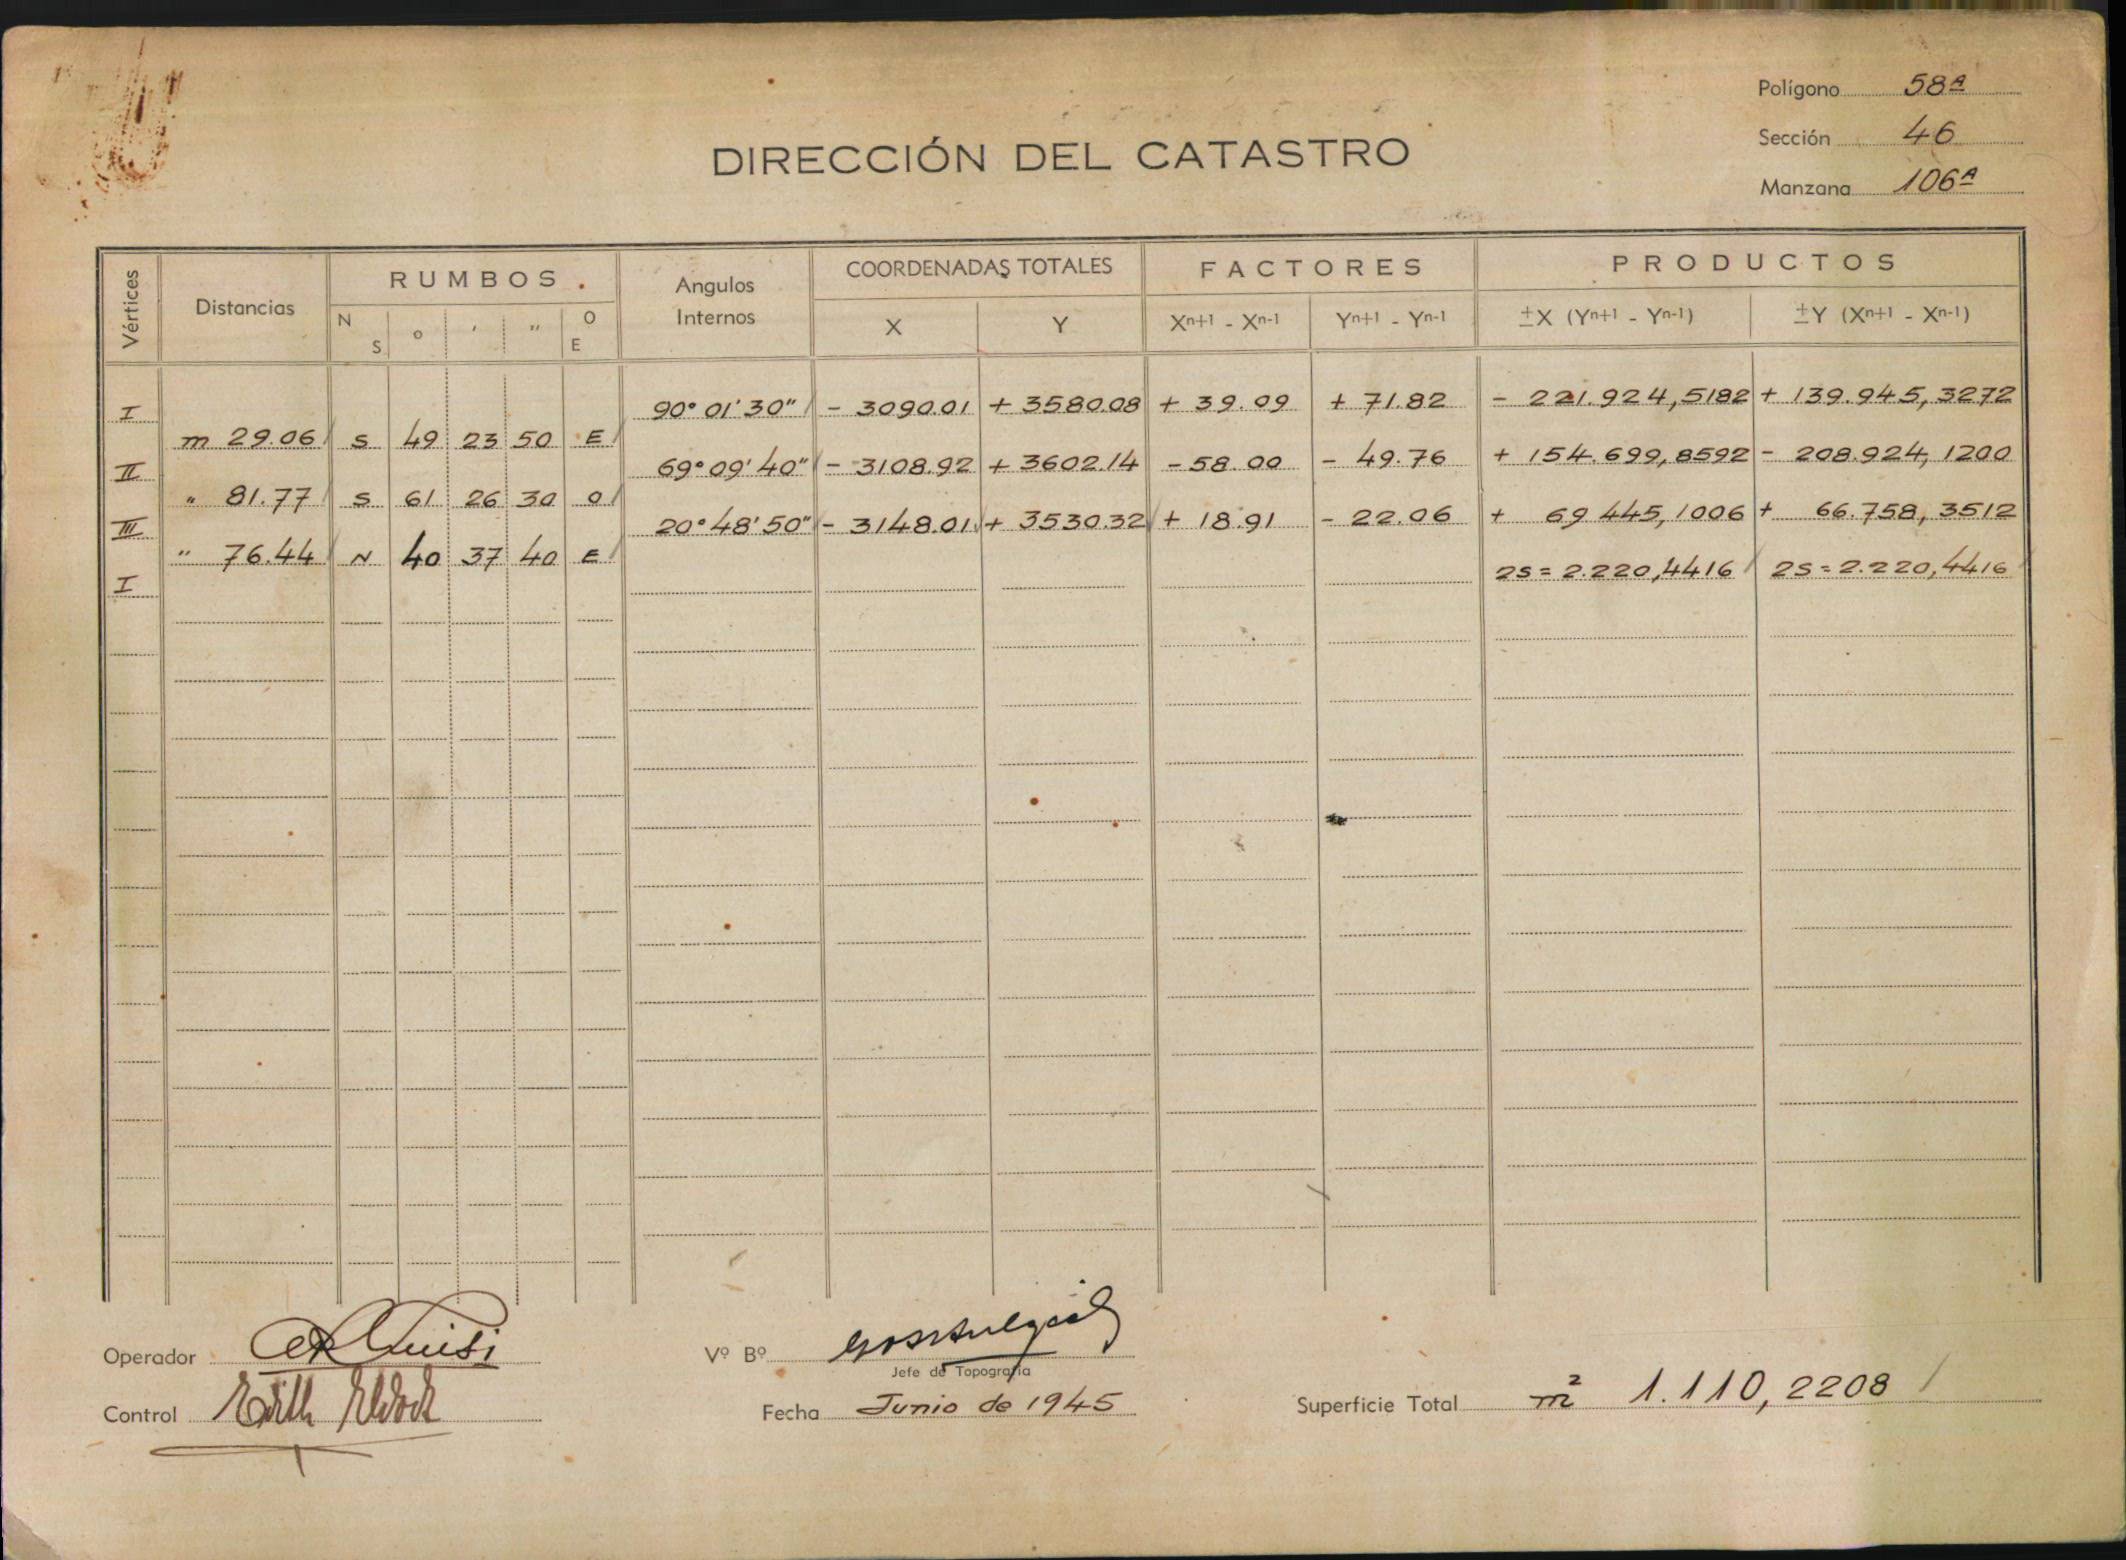 Polígono 58ª
Sección 46
Manzana 106ª
DIRECCIÓN DEL CATASTRO
Vértices Distancias RUMBOS. Angulos Internos COORDENADAS TOTALES FACTORES PRODUCTOS
N S o ' " O E X Y Xn+1 - Xn-1 Yn+1 - Yn-1 ±X (Yn+1 - Yn-1) ±Y (Xn+1 - Xn-1)
I 90° 01' 30" - 3090.01 + 3580.08 + 39.09 + 71.82 - 221.924,5182 + 139.945,3272
m 29.06 S 49 23 50 E
II 69° 09' 40" - 3108.92 + 3602.14 - 58.00 - 49.76 + 154.699,8592 - 208.924,1200
" 81.77 S 61 26 30 O
III 20° 48' 50" - 3148.01 + 3530.32 + 18.91 - 22.06 + 69 445,1006 + 66.758,3512
" 76.44 N 40 37 40 E
I 2S = 2.220,4416 2S = 2.220,4416
Operador
Vº Bº
Jefe de Topografía
Control
Fecha Junio de 1945
Superficie Total m² 1.110,2208